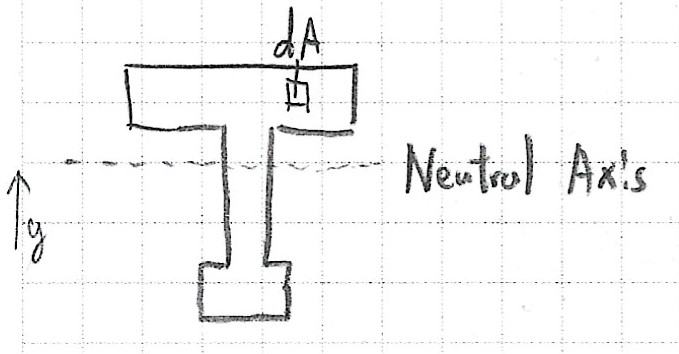 dA
Neutral Axis
y